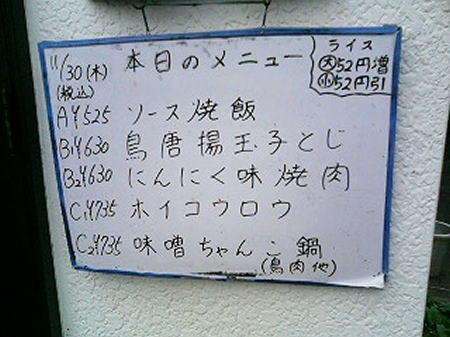 11/30(木) 本日のメニュー
(税込)
ライス
大52円増
小52円引
A ¥525 ソース焼飯
B1 ¥630 鳥唐揚玉子とじ
B2 ¥630 にんにく味焼肉
C1 ¥735 ホイコウロウ
C2 ¥735 味噌ちゃんこ鍋
(鳥肉他)